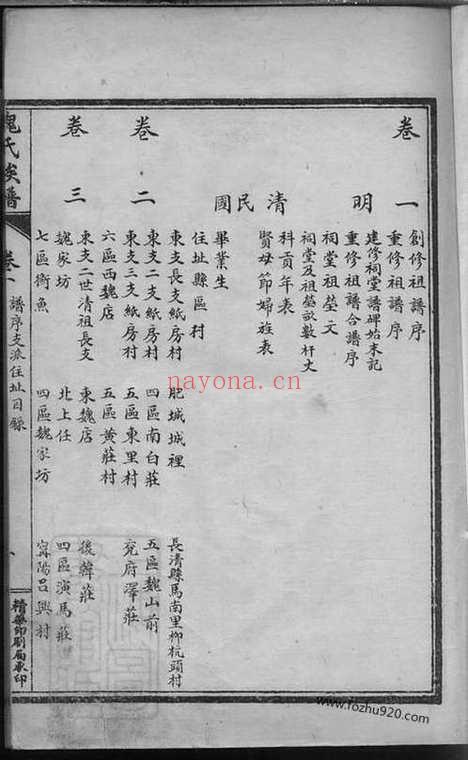 卷一
創修祖譜序
重修祖譜序
明
建修祠堂譜碑始末記
重修祖譜合譜序
祠堂祖塋文
祠堂及祖塋畝數杆丈
清
科貢年表
賢母節婦旌表
民國
畢業生
住址縣區村
卷二
東支長支紙房村 肥城城裡 長清縣馬南里柳杭頭村
東支二支紙房村 四區南白莊 五區魏山前
東支三支紙房村 五區東里村 兗府澤莊
六區西魏店 五區黃莊村
卷三
東支二世清祖長支 東魏店 後韓莊
魏家坊 北上任 四區演馬莊
七區衡魚 四區魏家坊 甯陽呂興村
魏氏族譜
卷一 譜序支派住址目錄
精藝印刷局承印
nayona.cn
www.fozhu920.com